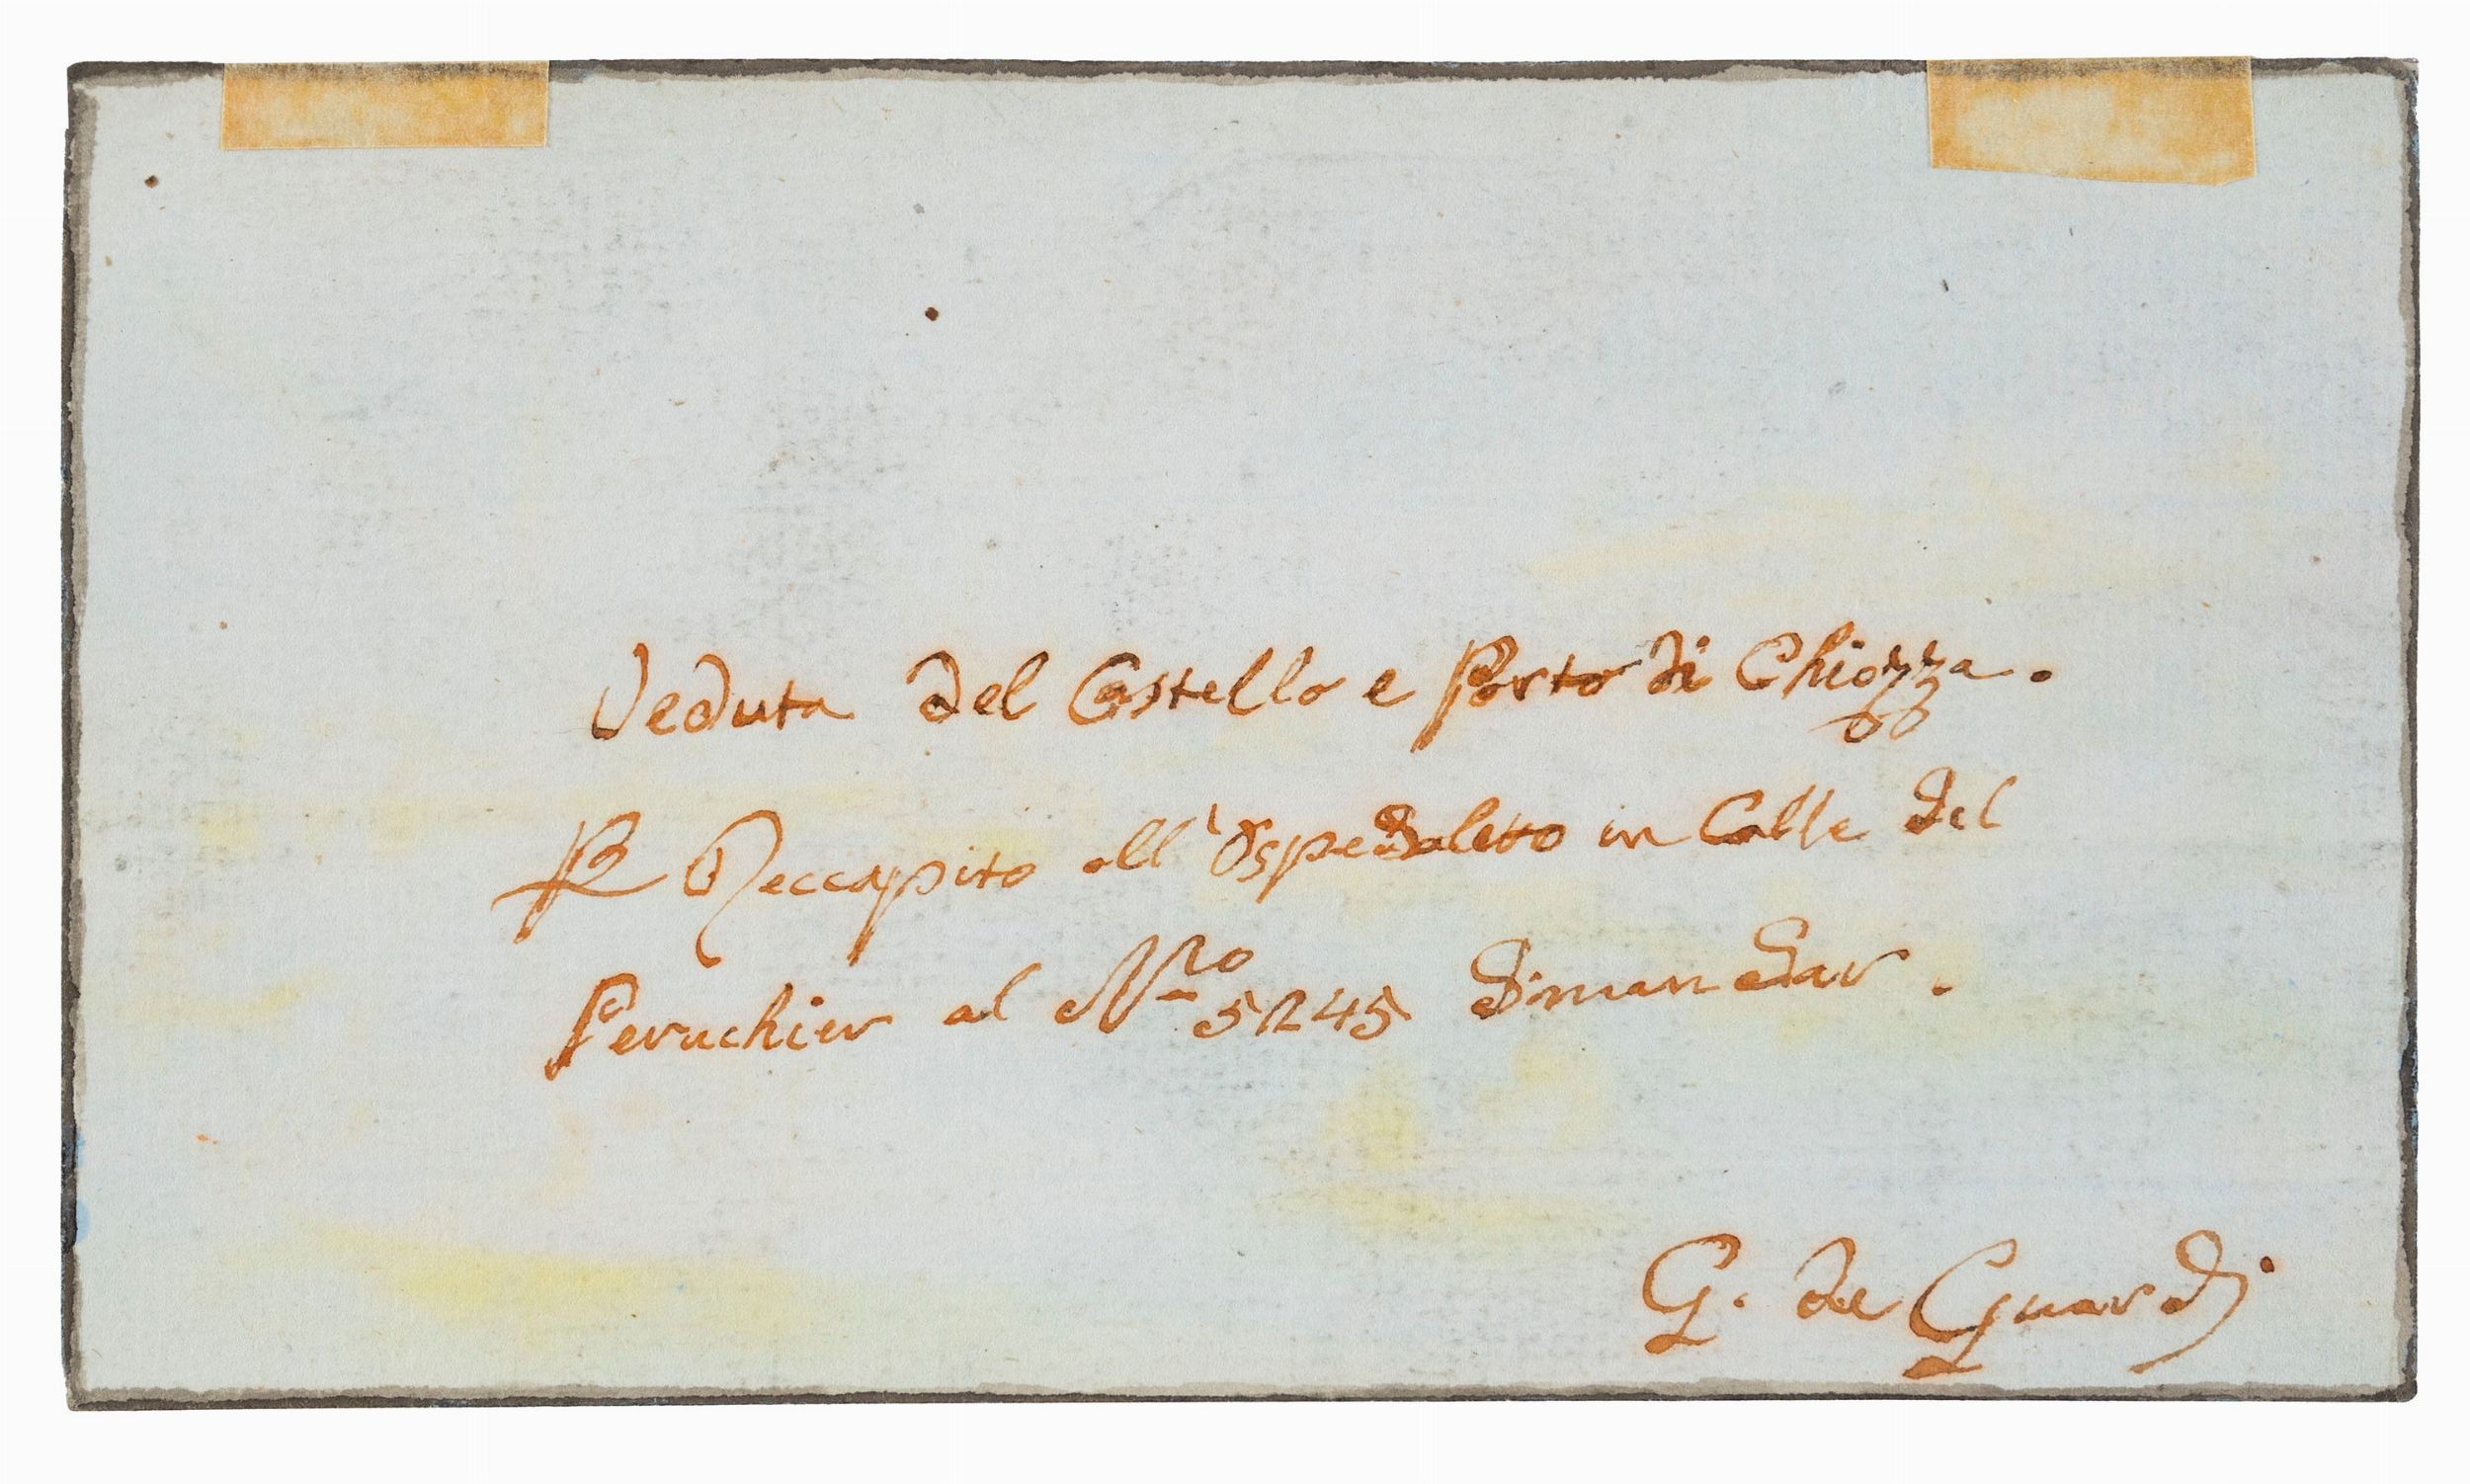 Veduta del Castello e Porto di Chiozza.
P Reccapito all'Ospedaletto in Calle del
Peruchier al Nro 5245 Dimandar.
G. de Guardi